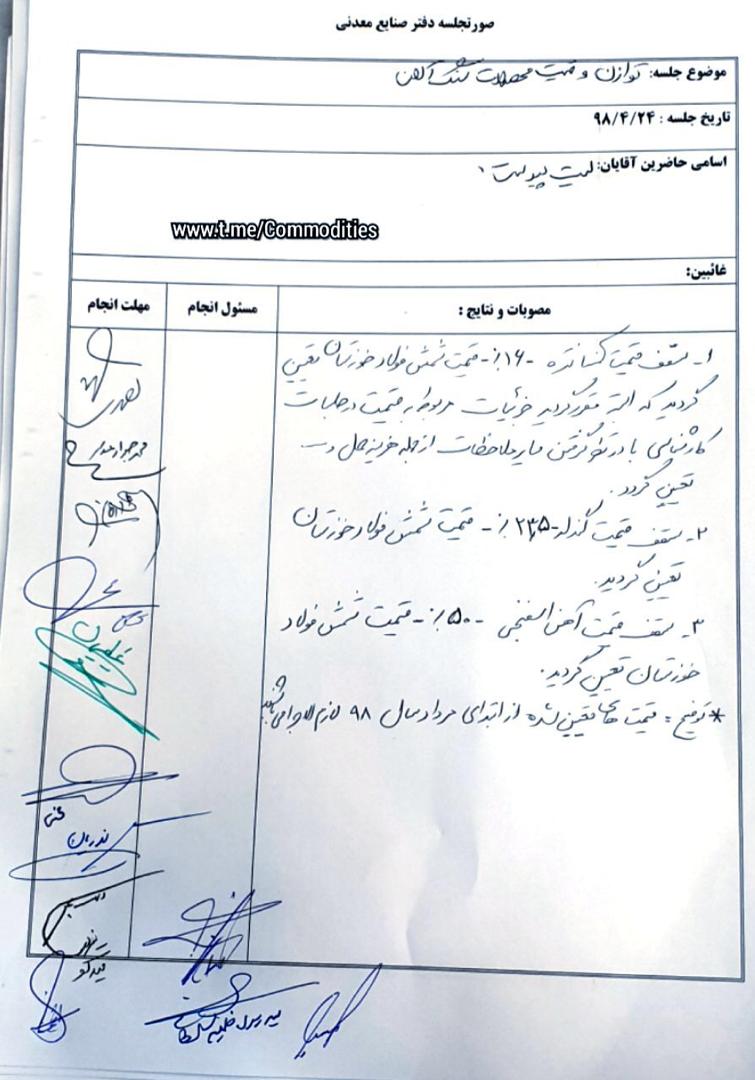 صورتجلسه دفتر صنایع معدنی
موضوع جلسه: توازن و قیمت محصولات سنگ آهن
تاریخ جلسه : ۹۸/۴/۲۴
اسامی حاضرین آقایان: لیست پیوست
www.t.me/Commodities
غائبین:
مصوبات و نتایج : مسئول انجام مهلت انجام
۱- سقف قیمت کنسانتره - ۱۶٪ - قیمت شمش فولاد خوزستان تعیین
گردید که البته مقرر گردید جزئیات مربوط به قیمت در جلسات
کارشناسی با در نظر گرفتن سایر ملاحظات از جمله هزینه حمل و ...
تعیین گردد.
۲- سقف قیمت گندله - ۲۳٫۵٪ - قیمت شمش فولاد خوزستان
تعیین گردید.
۳- سقف قیمت آهن اسفنجی - ۵۰٪ - قیمت شمش فولاد
خوزستان تعیین گردید.
* توضیح : قیمت های تعیین شده از ابتدای مرداد سال ۹۸ لازم الاجرا می باشد